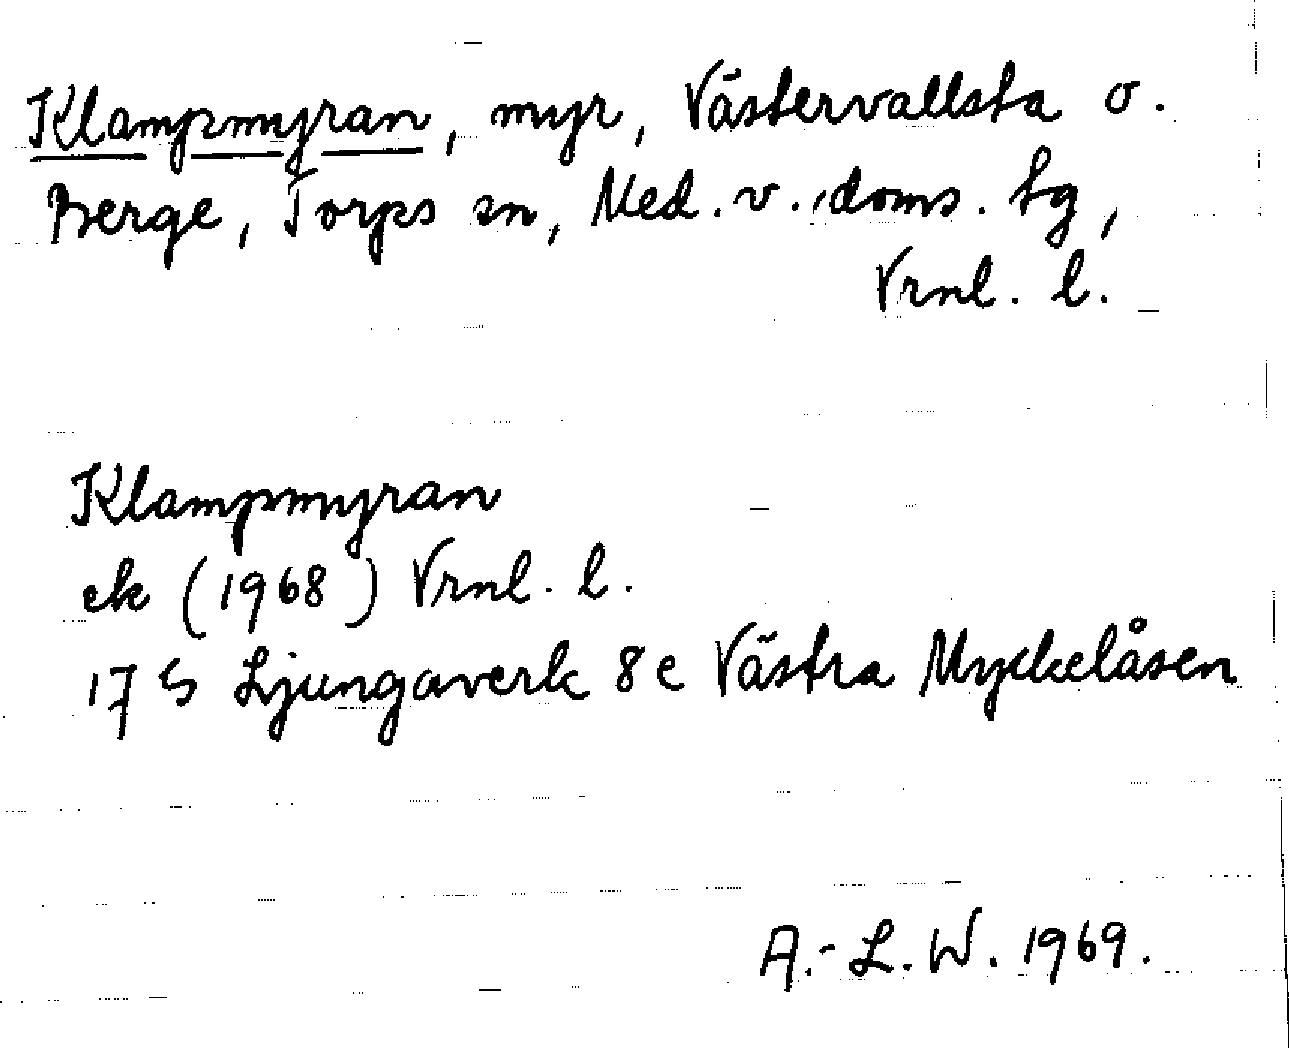 Klampmyran, myr, Västervallsta o.
Berge, Torps sn, Med. v. doms. tg,
Vrnl. l.
Klampmyran
ek (1968) Vrnl. l.
17 G Ljungaverk 8 e Västra Myckelåsen
A.-L. W. 1969.